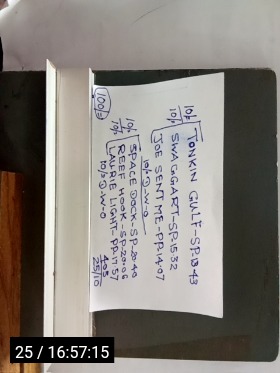 10/- TONKIN GULF-SP.13.43
10/- SWAGGART-SP.15.32
JOE SENT ME-PP.14.07
10/- D-W-O
10/- SPACE DOCK-SP.20.40
10/- REEF HOOK-SP.20.06
LAURIE LIGHT-PP.17.57
10/- D-W-O
100/-
4.05
25/10
25 / 16:57:15